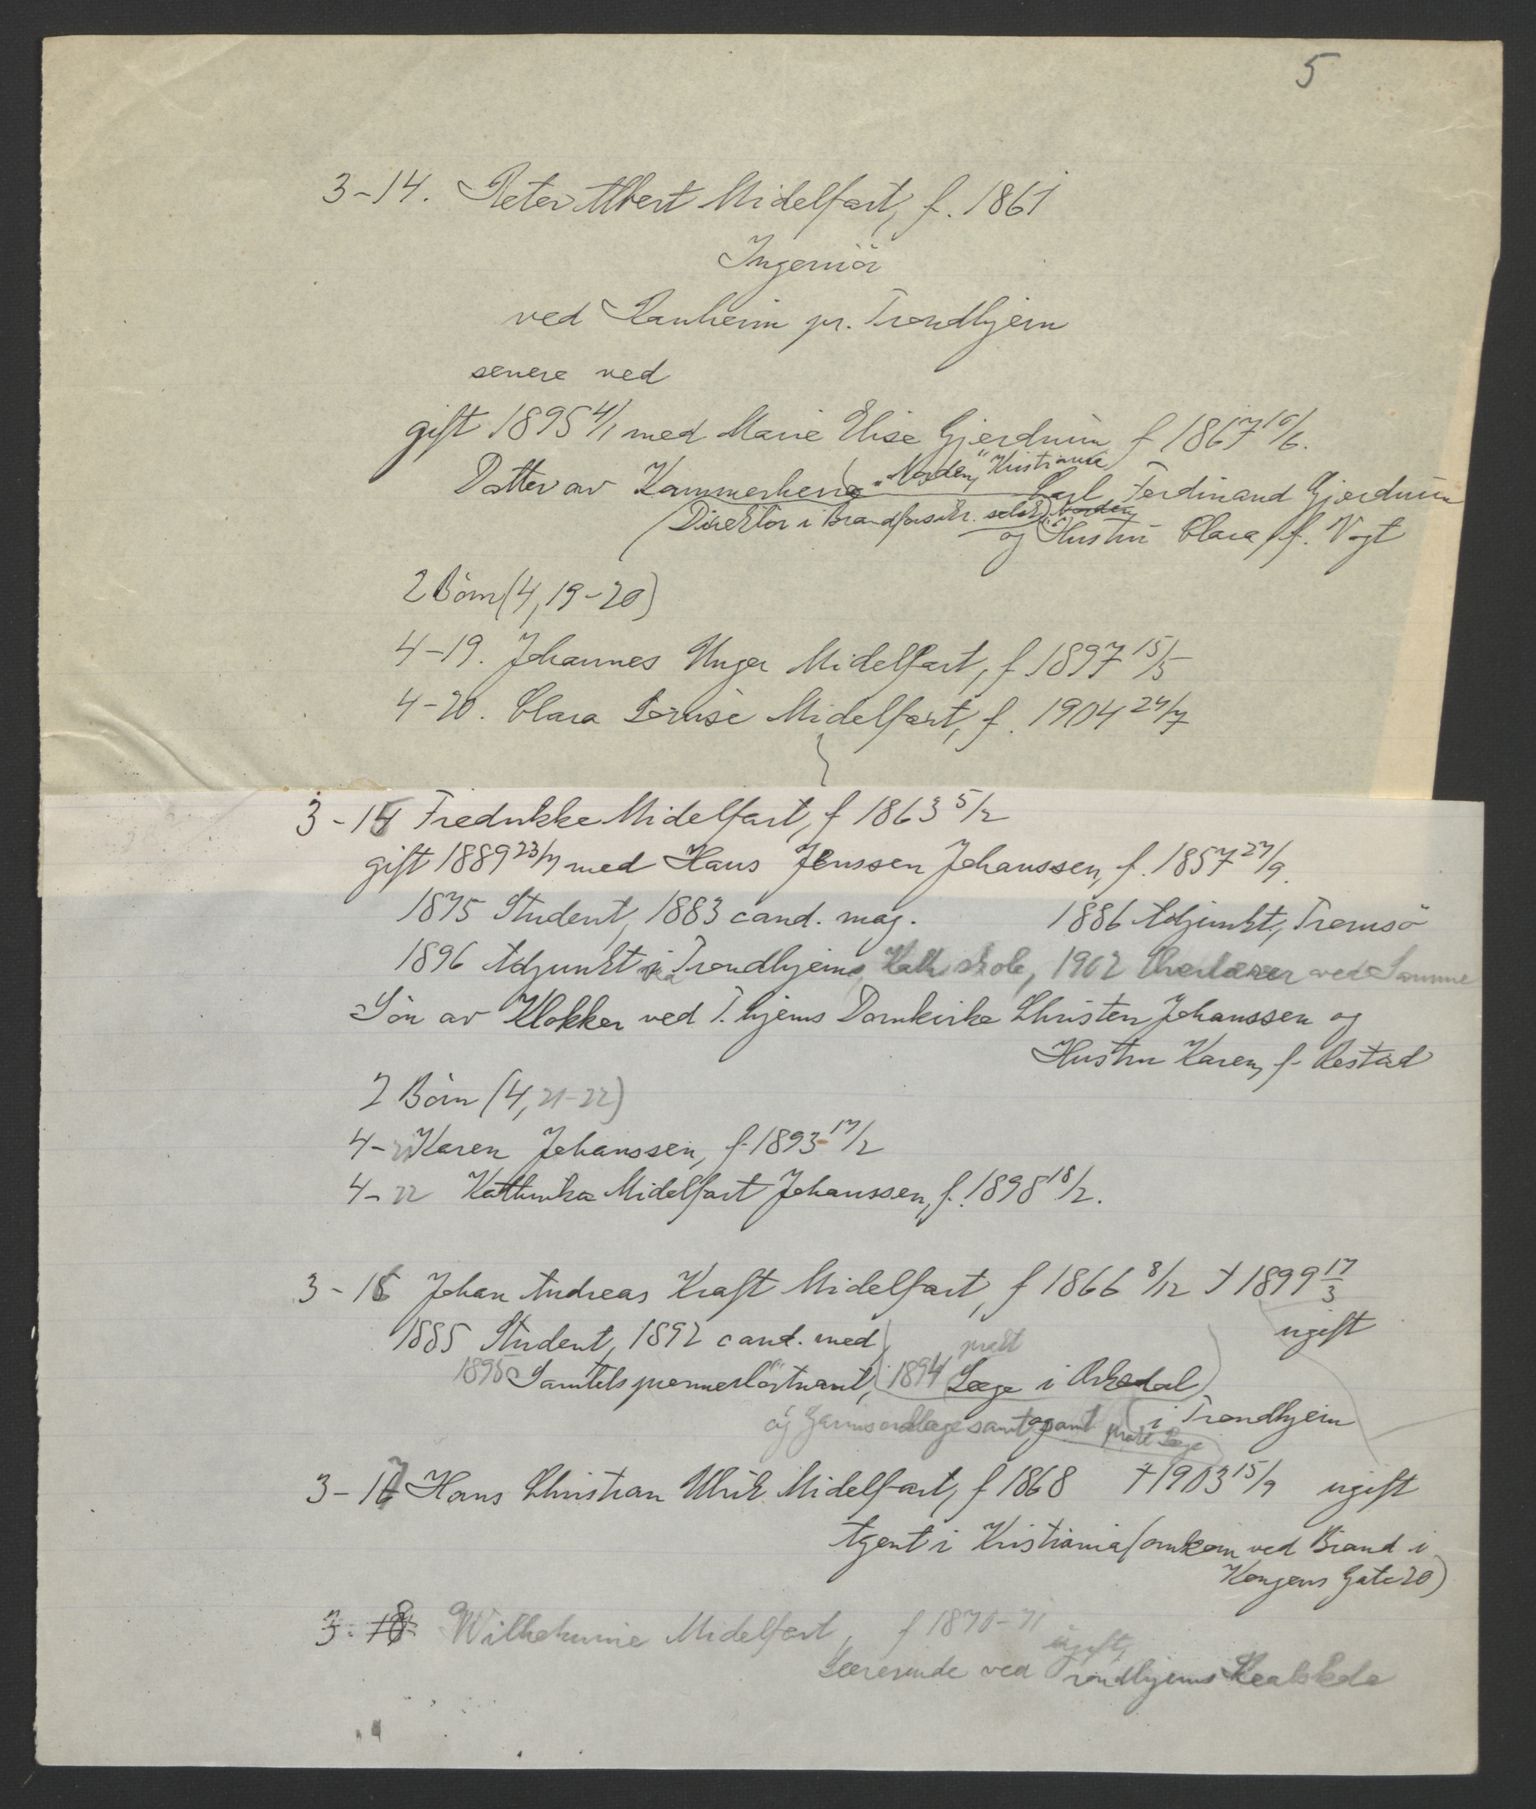 5
3-14. Peter Albert Midelfart, f. 1861
Ingeniör
ved Ranheim pr. Trondhjem
senere ved
gift 1895 4/1 med Marie Elise Gjerdrum f 1867 10/6.
"Norden," Kristiania
Datter av Kammerherre Carl Ferdinand Gjerdrum
(Direktör i Brandforsikr. selsk. Norden)
og Hustru Clara, f. Vogt
2 Börn (4, 19-20)
4-19. Johannes Unger Midelfart, f. 1897 15/5
4-20. Clara Louise Midelfart, f. 1904 24/7
3-15 Fredrikke Midelfart, f 1863 5/12
gift 1889 23/7 med Hans Jenssen Johanssen, f. 1857 27/9.
1875 Student, 1883 cand. mag. 1886 Adjunkt, Tromsö
1896 Adjunkt ved Trondhjems Kath. skole, 1902 Overlærer ved Samme
Sön av Klokker ved T.hjems Domkirke Christen Johanssen og
Hustru Karen, f. Restad
2 Börn (4, 21-22)
4-21 Karen Johanssen, f. 1893 17/2
4-22 Kathinka Midelfart Johanssen, f. 1898 18/2.
3-16 Johan Andreas Kraft Midelfart, f 1866 8/12 † 1899 17/3
ugift
1885 Student, 1892 cand. med
prakt
1895 Sanitetspremierlöitnant, (1894 Læge i Orkedal)
og samt prakt Læge i Trondhjem
3-17 Hans Christian Ulrik Midelfart, f 1868 † 1903 15/9 ugift
Agent i Kristiania (omkom ved Brand i
Kongens Gate 20)
3-18 Wilhelmine Midelfart, f 1870-71
ugift,
Lærerinde ved Trondhjems Realskole